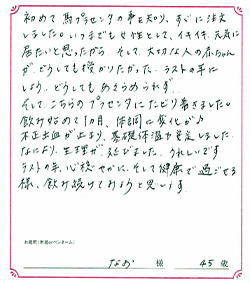 初めて馬プラセンタの事を知り、すぐに注文
しました。いつまでも女性として、イキイキ、元気に
居たいと思ったから。そして、大切な人の赤ちゃん
が、どうしても授かりたかった。ラストの年に
しよう。どうしてもあきらめられず、
そして、こちらのプラセンタにたどり着きました。
飲み始めて1ヵ月、体調に変化が♪
不正出血が止まり、基礎体温も安定しました。
なにより、生理が、延びました。うれしいです
ラストの年、心穏やかに、そして健康で過ごせる
様、飲み続けてみようと思います。
お名前（本名orペンネーム）
なお 様 45歳